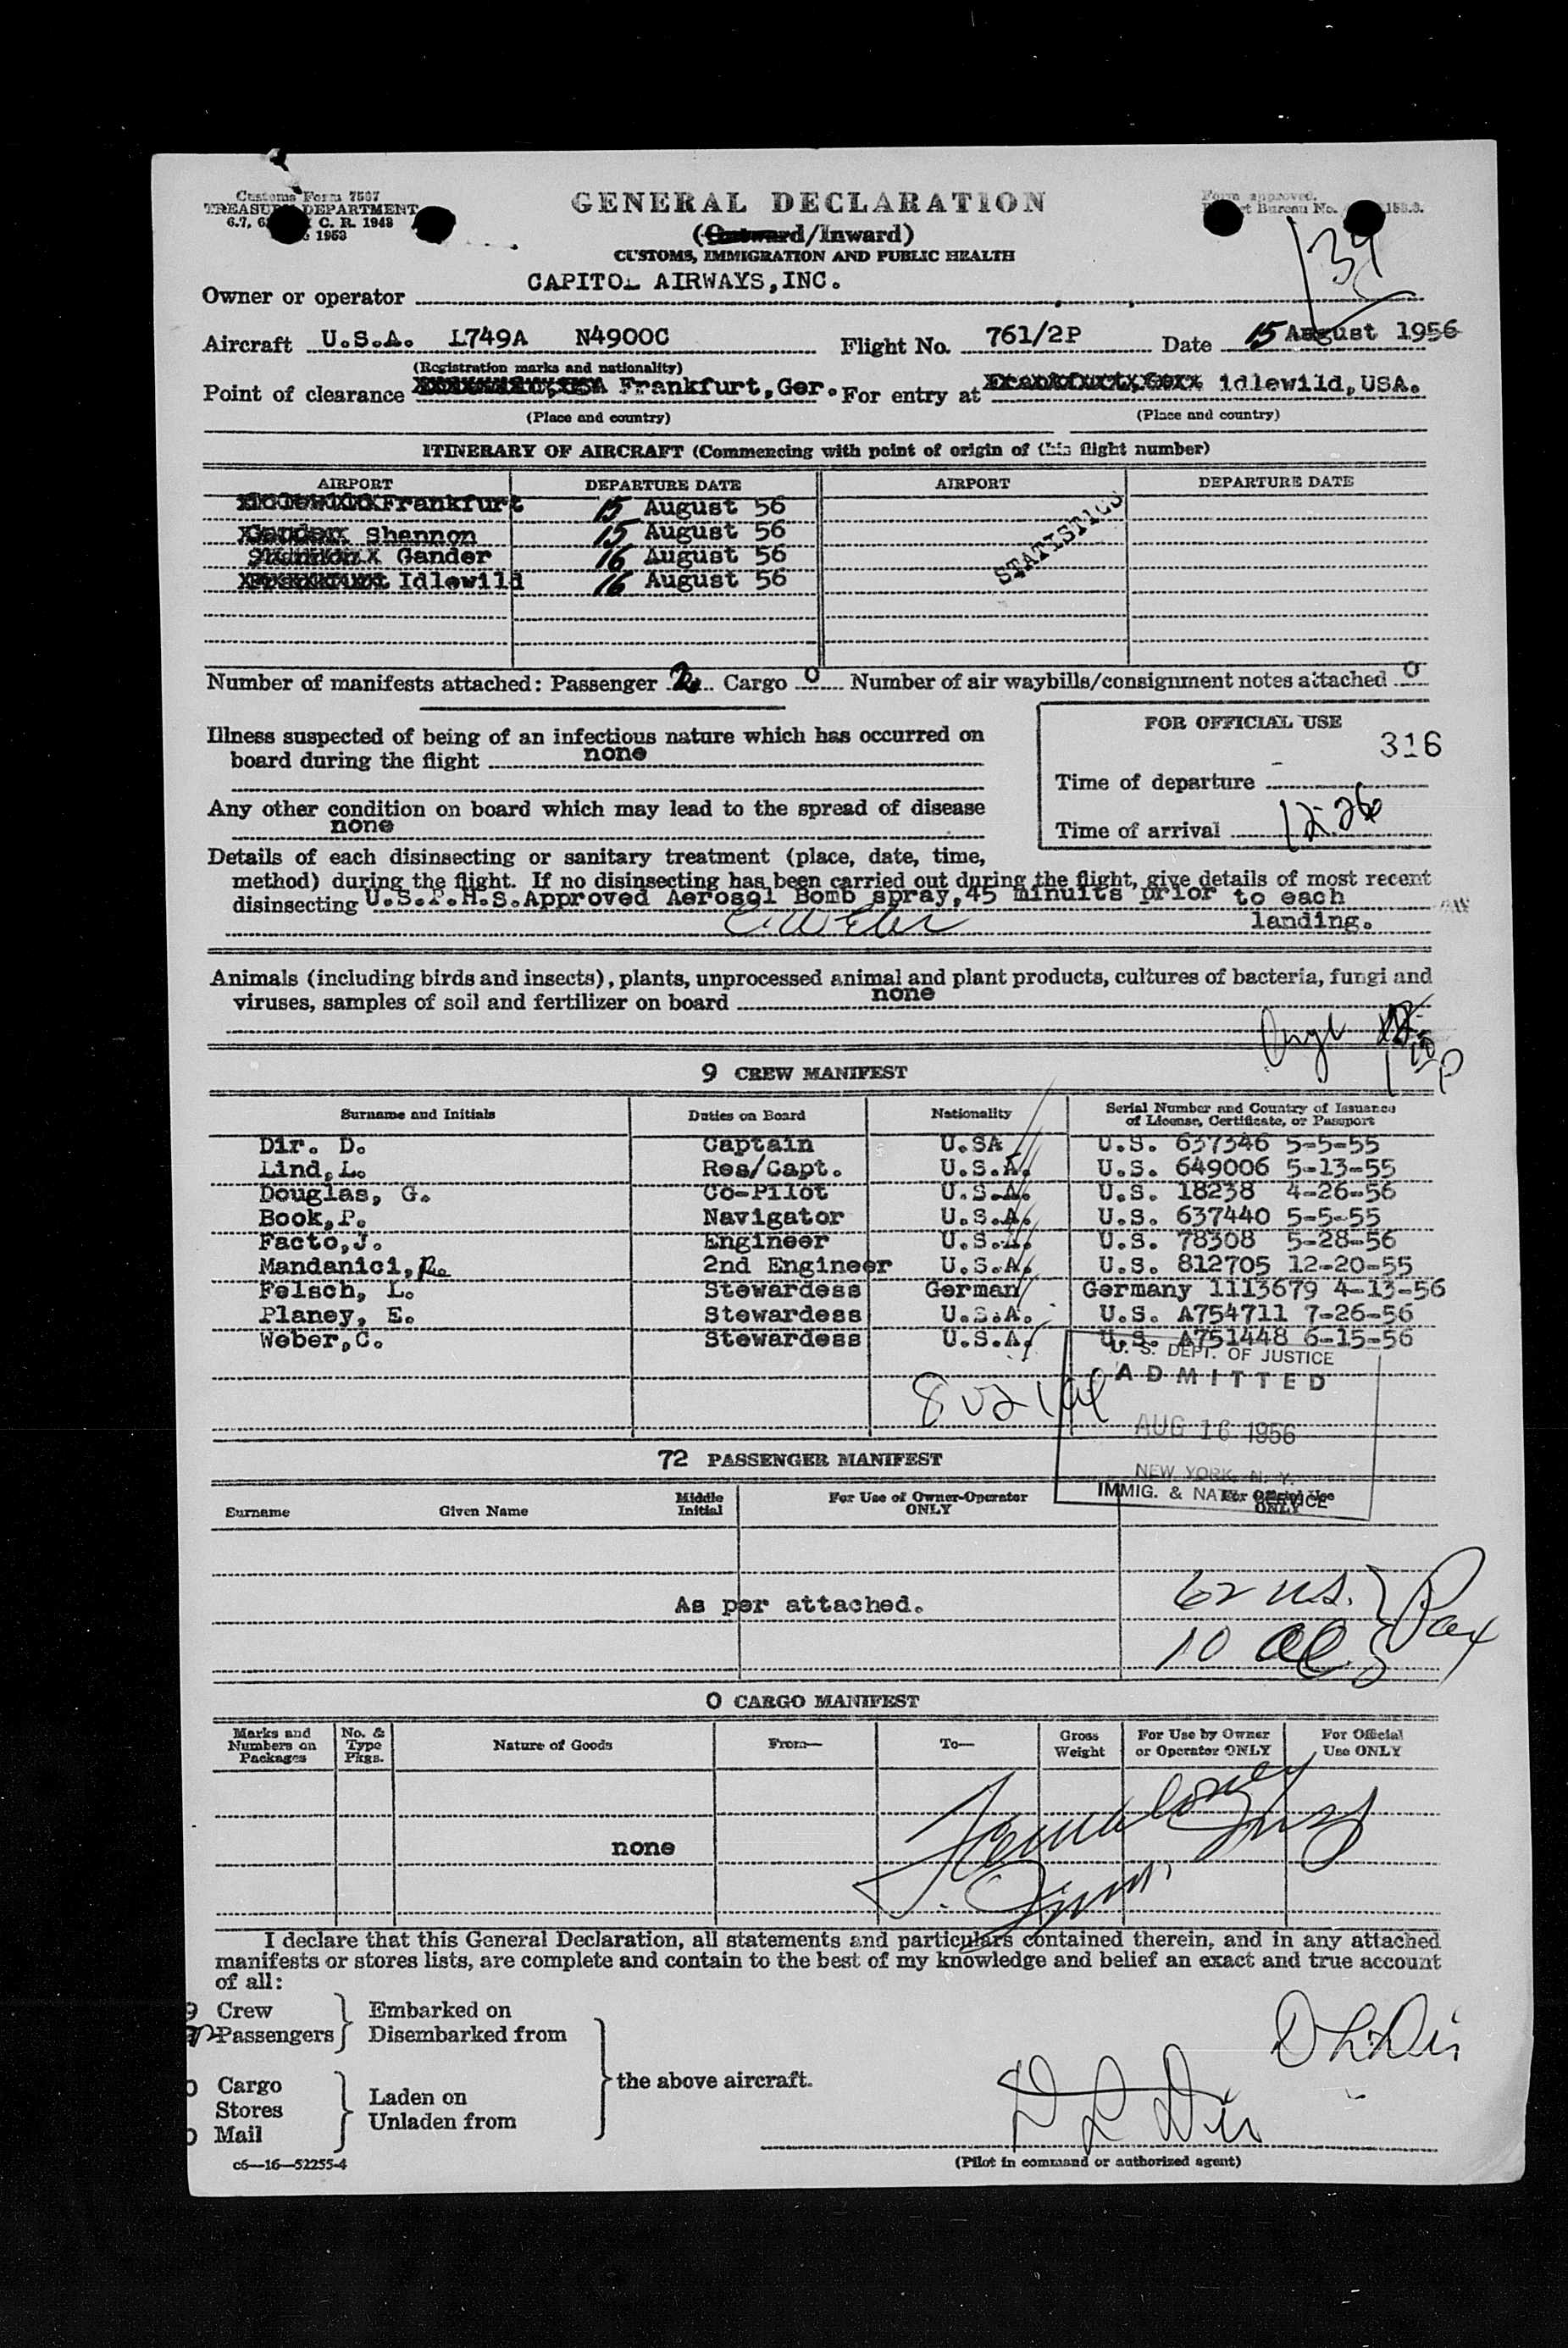 Customs Form 7507
TREASURY DEPARTMENT
C. R. 1943
1953
GENERAL DECLARATION
(Outward/Inward)
CUSTOMS, IMMIGRATION AND PUBLIC HEALTH
Form approved.
Bureau No.
139
Owner or operator CAPITOL AIRWAYS,INC.
Aircraft U.S.A. L749A N4900C Flight No. 761/2P Date 15 August 1956
(Registration marks and nationality)
Point of clearance Frankfurt,Ger. For entry at idlewild,USA.
(Place and country) (Place and country)
ITINERARY OF AIRCRAFT (Commencing with point of origin of this flight number)
AIRPORT DEPARTURE DATE AIRPORT DEPARTURE DATE
Frankfurt 15 August 56
Shannon 15 August 56
Gander 16 August 56
Idlewild 16 August 56
STATISTICS
Number of manifests attached: Passenger 2 Cargo 0 Number of air waybills/consignment notes attached 0
Illness suspected of being of an infectious nature which has occurred on
board during the flight none
Any other condition on board which may lead to the spread of disease
none
FOR OFFICIAL USE
316
Time of departure
Time of arrival 12:26
Details of each disinsecting or sanitary treatment (place, date, time,
method) during the flight. If no disinsecting has been carried out during the flight, give details of most recent
disinsecting U.S.P.H.S.Approved Aerosol Bomb spray,45 minuits prior to each
landing.
C. Weber
Animals (including birds and insects), plants, unprocessed animal and plant products, cultures of bacteria, fungi and
viruses, samples of soil and fertilizer on board none
9 CREW MANIFEST
Surname and Initials Duties on Board Nationality Serial Number and Country of Issuance
of License, Certificate, or Passport
Dir. D. Captain U.SA U.S. 637346 5-5-55
Lind,L. Res/Capt. U.S.A. U.S. 649006 5-13-55
Douglas, G. Co-Pilot U.S.A. U.S. 18238 4-26-56
Book,P. Navigator U.S.A. U.S. 637440 5-5-55
Facto,J. Engineer U.S.A. U.S. 78308 5-28-56
Mandanici,R. 2nd Engineer U.S.A. U.S. 812705 12-20-55
Felsch, L. Stewardess German Germany 1113679 4-13-56
Planey, E. Stewardess U.S.A. U.S. A754711 7-26-56
Weber,C. Stewardess U.S.A. U.S. A751448 6-15-56
U. S. DEPT. OF JUSTICE
ADMITTED
AUG 16 1956
NEW YORK, N. Y.
IMMIG. & NATZ. SERVICE
72 PASSENGER MANIFEST
Surname Given Name Middle
Initial For Use of Owner-Operator
ONLY For Official Use
ONLY
As per attached.
62 U.S.
10 Al
Pax
0 CARGO MANIFEST
Marks and
Numbers on
Packages No. &
Type
Pkgs. Nature of Goods From— To— Gross
Weight For Use by Owner
or Operator ONLY For Official
Use ONLY
none
I declare that this General Declaration, all statements and particulars contained therein, and in any attached
manifests or stores lists, are complete and contain to the best of my knowledge and belief an exact and true account
of all:
9 Crew Embarked on
72 Passengers Disembarked from
the above aircraft.
0 Cargo Laden on
Stores Unladen from
0 Mail
D L Dir
D L Dir
(Pilot in command or authorized agent)
c6—16—52255-4